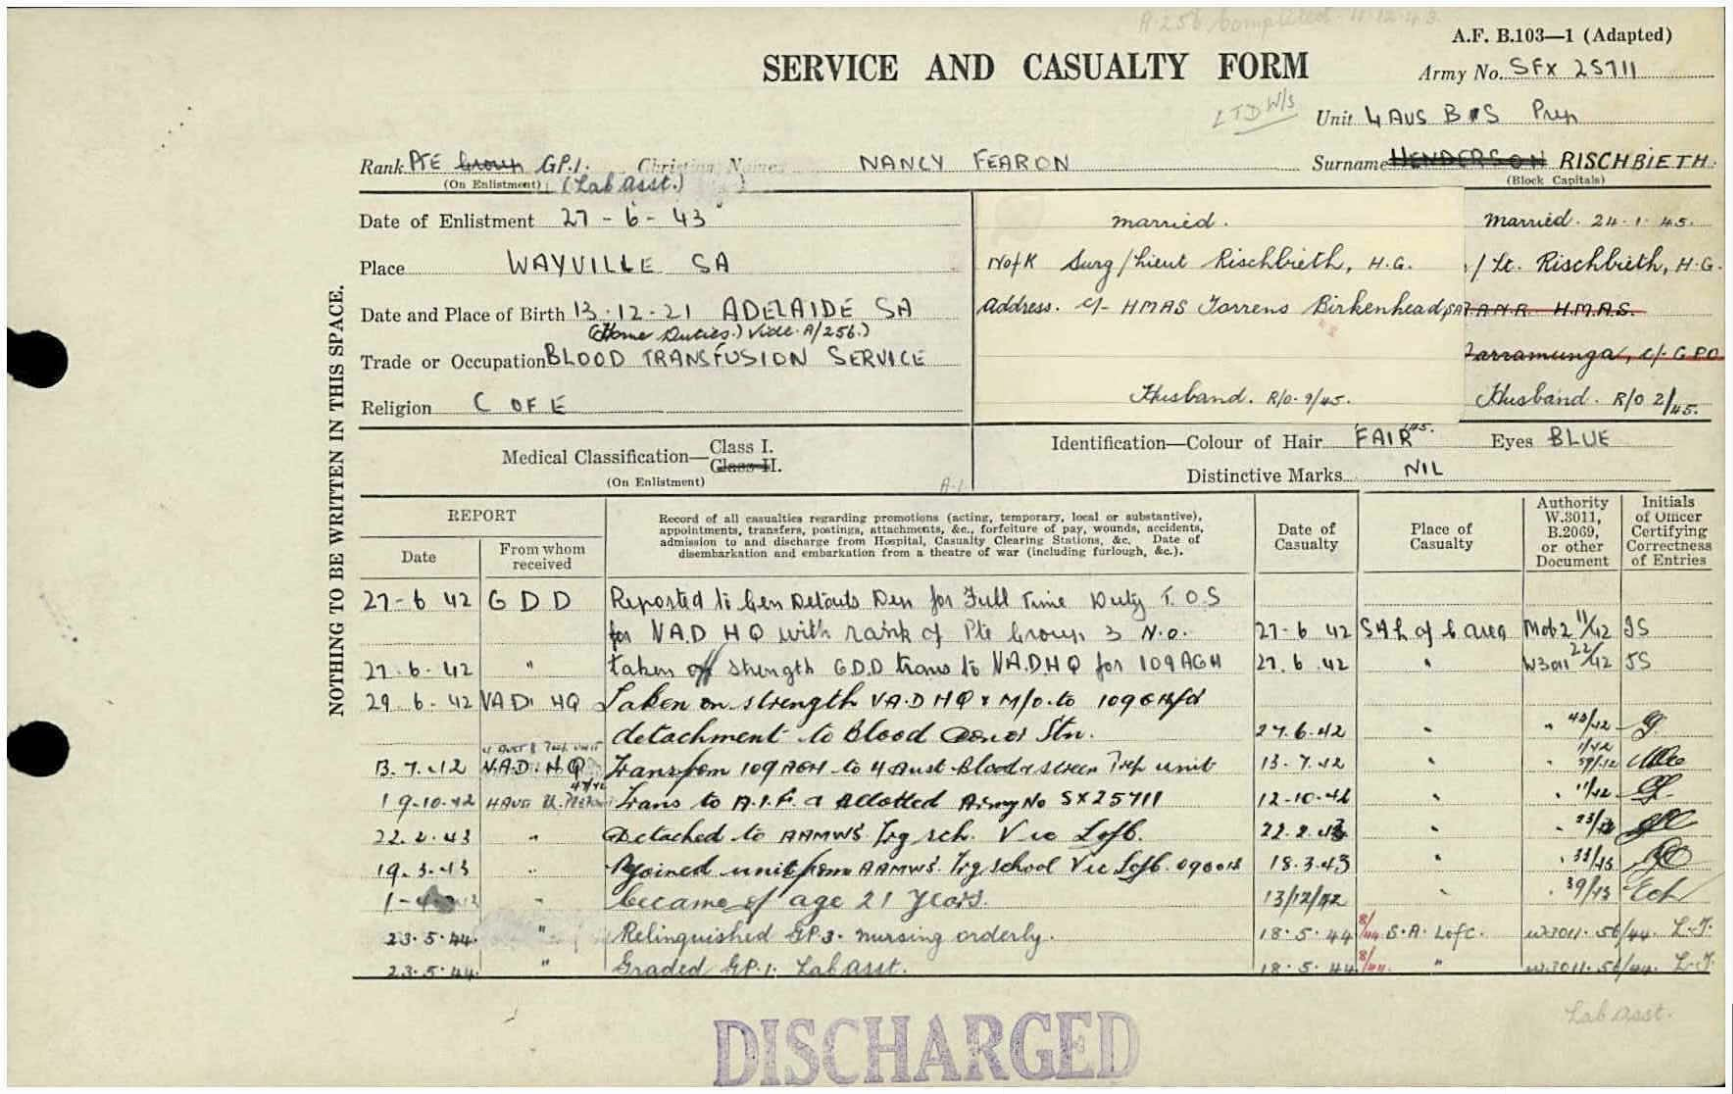 A.256 Completed 11.12.43.
A.F. B.103—1 (Adapted)
SERVICE AND CASUALTY FORM
Army No. SFX 25711
LTD W/S
Unit 4 AUS B & S Prep
Rank PTE Group GP.1. Christian Names NANCY FEARON Surname HENDERSON RISCHBIETH
(On Enlistment) (Lab Asst.) (Block Capitals)
NOTHING TO BE WRITTEN IN THIS SPACE.
Date of Enlistment 27-6-43
Place WAYVILLE SA
Date and Place of Birth 13.12.21 ADELAIDE SA
(Home Duties.) Vide A/256.)
Trade or Occupation BLOOD TRANSFUSION SERVICE
Religion C OF E
married.
N of K Surg/Lieut Rischbieth, H.G.
Address. c/- HMAS Torrens Birkenhead, SA
Husband. R/O. 9/45.
Married. 24.1.45.
/Lt. Rischbieth, H.G.
R.A.N.R. H.M.A.S.
Warramunga, c/- GPO
Husband. R/O 2/45.
Medical Classification— Class I.
Class II.
(On Enlistment)
A.1.
Identification—Colour of Hair FAIR Eyes BLUE
Distinctive Marks NIL
REPORT
Date
From whom received
Record of all casualties regarding promotions (acting, temporary, local or substantive),
appointments, transfers, postings, attachments, &c., forfeiture of pay, wounds, accidents,
admission to and discharge from Hospital, Casualty Clearing Stations, &c. Date of
disembarkation and embarkation from a theatre of war (including furlough, &c.).
Date of Casualty
Place of Casualty
Authority W.3011, B.2069, or other Document
Initials of Officer Certifying Correctness of Entries
27-6 42 G D D Reported to Gen Details Dep for Full Time Duty T.O.S
for V.A.D HQ with rank of Pte Group 3 N.O. 27-6 42 S A L of C area Mob2 11/42 JS
27.6.42 " taken off strength G.D.D trans to V.A.D.H.Q for 109 AGH 27.6.42 " W3011 22/42 JS
29 6-42 VAD HQ Taken on strength V.A.D HQ & M/O. to 109 for
detachment to Blood Donor Stn. 27.6.42 " 43/42
4 Aust B Prep Unit
13.7.42 V.A.D. HQ Trans from 109 AGH to 4 Aust Blood & Serum Prep unit 13.7.42 "
19-10-42 Trans to A.I.F. & Allotted Army No SX25711 12-10-42 " 11/42
22.2.43 " Detached to AAMWS Trg sch. Vic LofC. 22.2.43 "
19.3.43 " Rejoined unit from AAMWS. Trg school Vic LofC. 0900 hrs 18.3.43 " 33/43
" became of age 21 years. 13/12/42 " 39/43
23.5.44. " Relinquished GP.3. nursing orderly. 18.5.44 8/44 S.A. LofC. W3011. 56/44. L.J.
23.5.44. " Graded GP.1. Lab Asst. 18.5.44 8/44. " W.3011. 56/44. L.J.
Lab Asst.
DISCHARGED